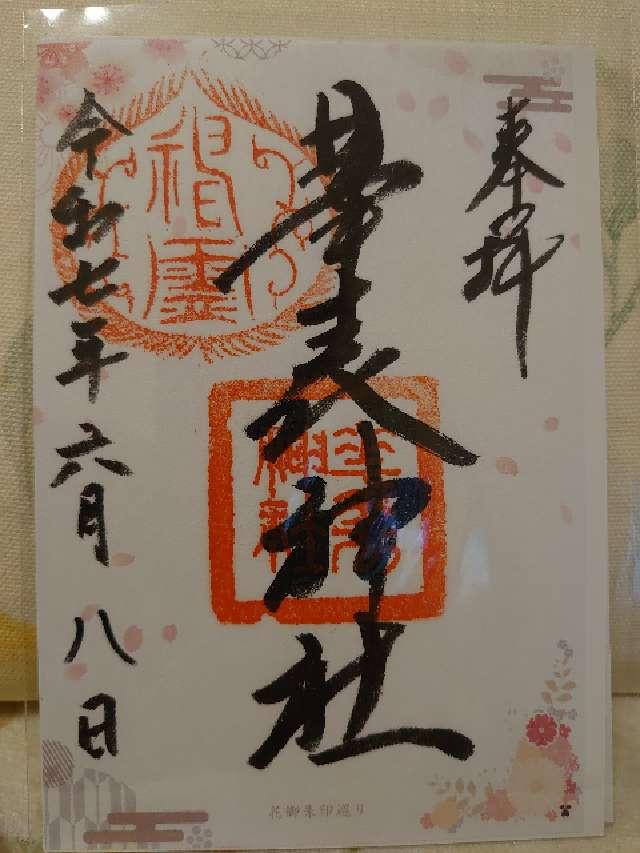 奉拝
華表神社
祖霊
令和七年六月八日
花御朱印巡り